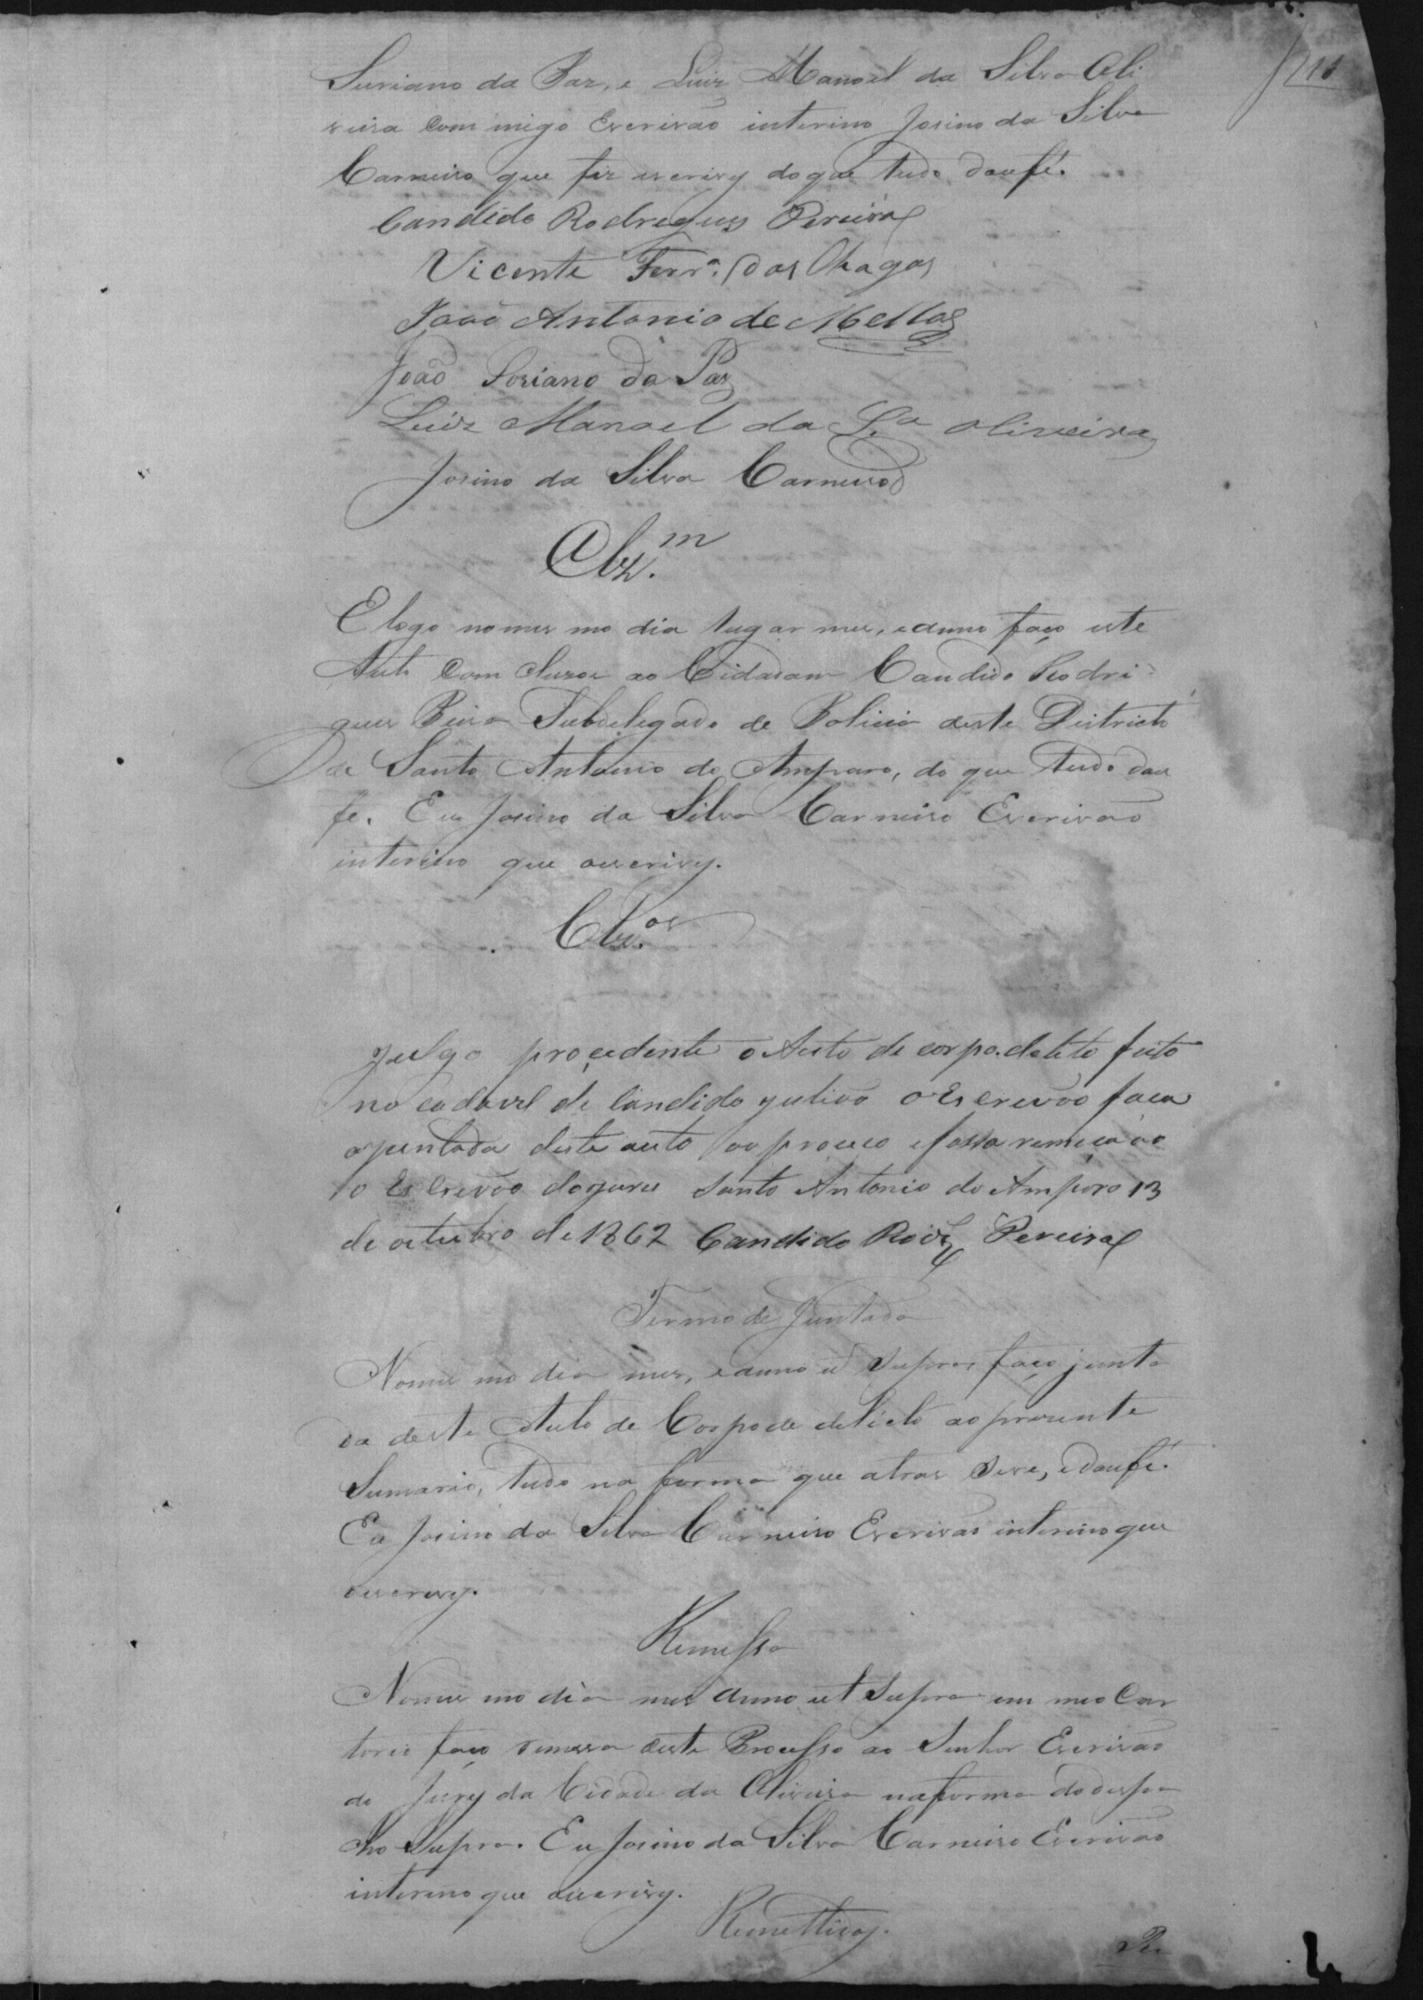 Suriano da Paz, e Luiz Manoel da Silva Oli
veira com migo Escrivão interino Josino da Silva
Carneiro que fiz escrivy do que tudo dou fé.
Candido Rodregues Pereira
Vicente Ferr.ª das Chagas
João Antonio de Mello
João Soriano da Paz
Luiz Manoel da S.ª Oliveira
Josino da Silva Carneiro
Clz.m
E logo no mes mo dia lugar mes, e anno faço este
Auto com cluzos ao Cidadam Candido Rodri
gues Subdelegado de Policia deste Districto
de Santo Antonio do Amparo, do que tudo dou
fé. Eu Josino da Silva Carneiro Escrivão
interino que oescrivy.
Clz.os
julgo proçedente o Auto de corpo. delito feito
no cadavel de Candido o Escrevão faca
ajuntada deste auto ao proceço efassa remeça ao
o Escrevão dojures Santo Antonio do Amparo 13
de outubro de 1862 Candido Roiz Pereira
Termo de Juntada
No mes mo dia mes, e anno ut Supra, faço junta
da deste Auto de Corpo de delicto ao prezente
Sumario, tudo na forma que atras deve, e dou fé.
Eu Josino da Silva Carneiro Escrivão interino que
oescrevy.
Remessa
No mes mo dia mes Anno ut Supra em meo Car
torio faço remessa deste Processo ao Senhor Escrivão
do Jury da Cidade da Oliveira na forma do despa
cho Supra. Eu Josino da Silva Carneiro Escrivão
interino que oescrivy.
Remettidos.